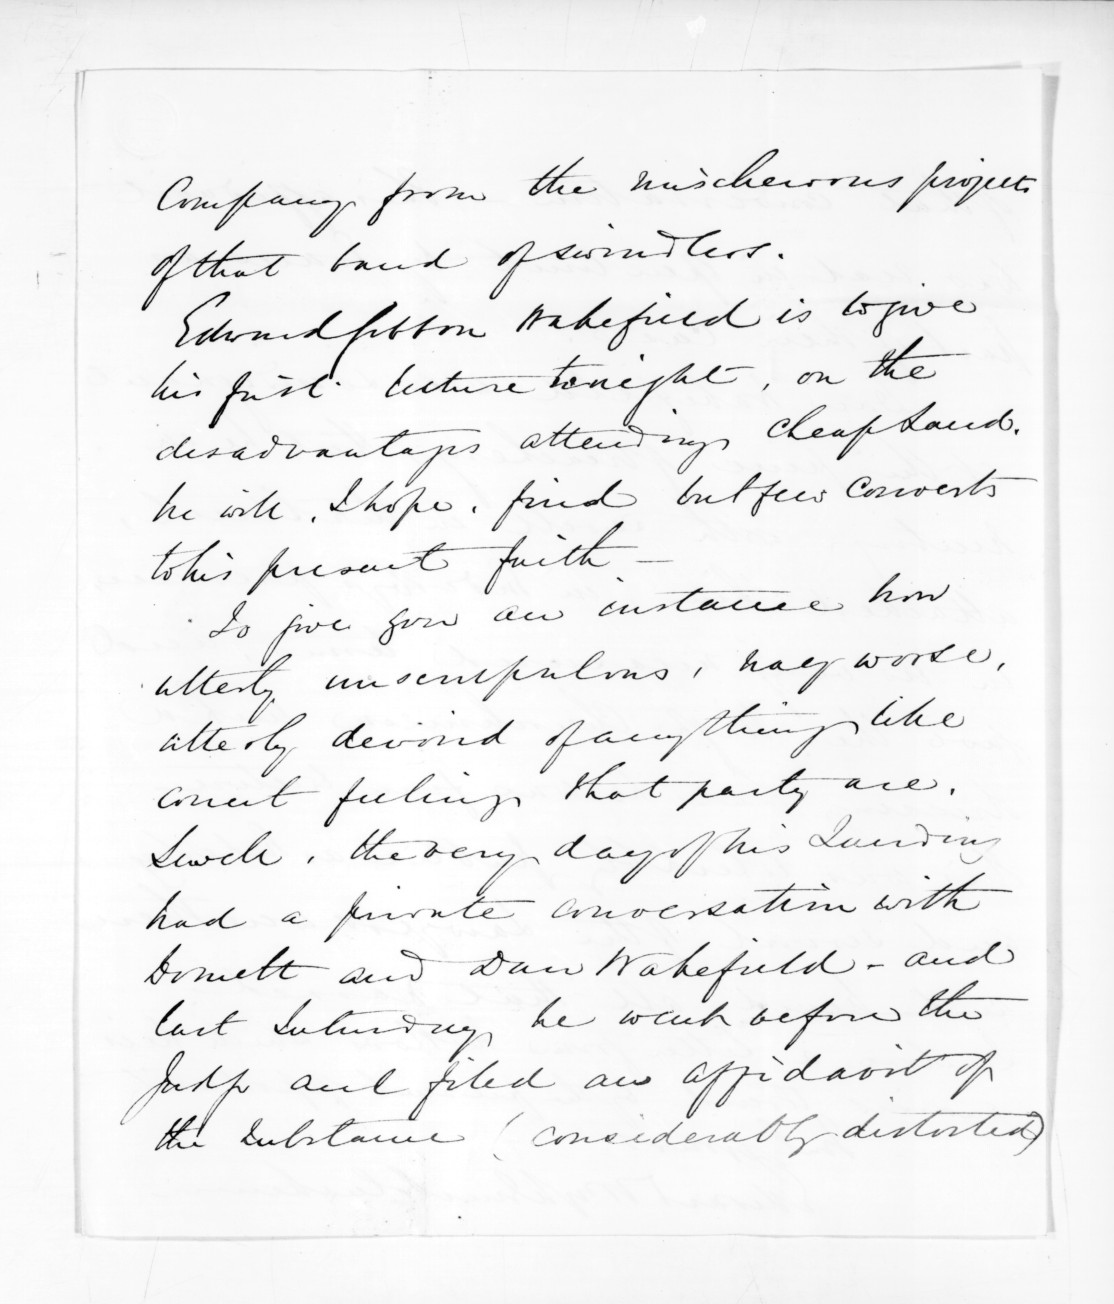 Company from the mischevous projects
of that band of swindlers.
Edward Gibbon Wakefield is to give
his first lecture tonight, on the
disadvantages attending cheap Land.
he will, I hope, find but few converts
to his present faith —
To give you an instance how
utterly unscrupulous, nay worse,
utterly devoid of anything like
correct feeling that party are,
Sewell, the very day of his Landing
had a private conversation with
Domett and Dan Wakefield - and
last Saturday he went before the
Judge and filed an affidavit of
the Substance (considerably distorted)